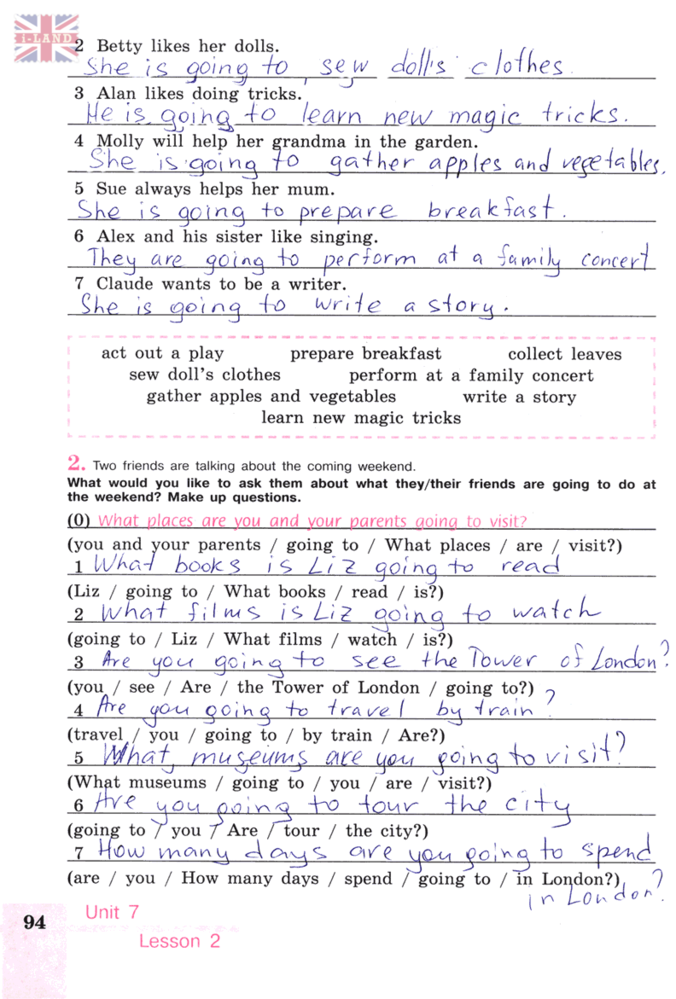 i-LAND
2 Betty likes her dolls.
She is going to sew doll's clothes.
3 Alan likes doing tricks.
He is going to learn new magic tricks.
4 Molly will help her grandma in the garden.
She is going to gather apples and vegetables.
5 Sue always helps her mum.
She is going to prepare breakfast.
6 Alex and his sister like singing.
They are going to perform at a family concert
7 Claude wants to be a writer.
She is going to write a story.
act out a play prepare breakfast collect leaves
sew doll's clothes perform at a family concert
gather apples and vegetables write a story
learn new magic tricks
2. Two friends are talking about the coming weekend.
What would you like to ask them about what they/their friends are going to do at
the weekend? Make up questions.
(0) What places are you and your parents going to visit?
(you and your parents / going to / What places / are / visit?)
1 What books is Liz going to read
(Liz / going to / What books / read / is?)
2 What films is Liz going to watch
(going to / Liz / What films / watch / is?)
3 Are you going to see the Tower of London?
(you / see / Are / the Tower of London / going to?)
4 Are you going to travel by train?
(travel / you / going to / by train / Are?)
5 What museums are you going to visit?
(What museums / going to / you / are / visit?)
6 Are you going to tour the city
(going to / you / Are / tour / the city?)
7 How many days are you going to spend
(are / you / How many days / spend / going to / in London?)
in London?
94 Unit 7
Lesson 2